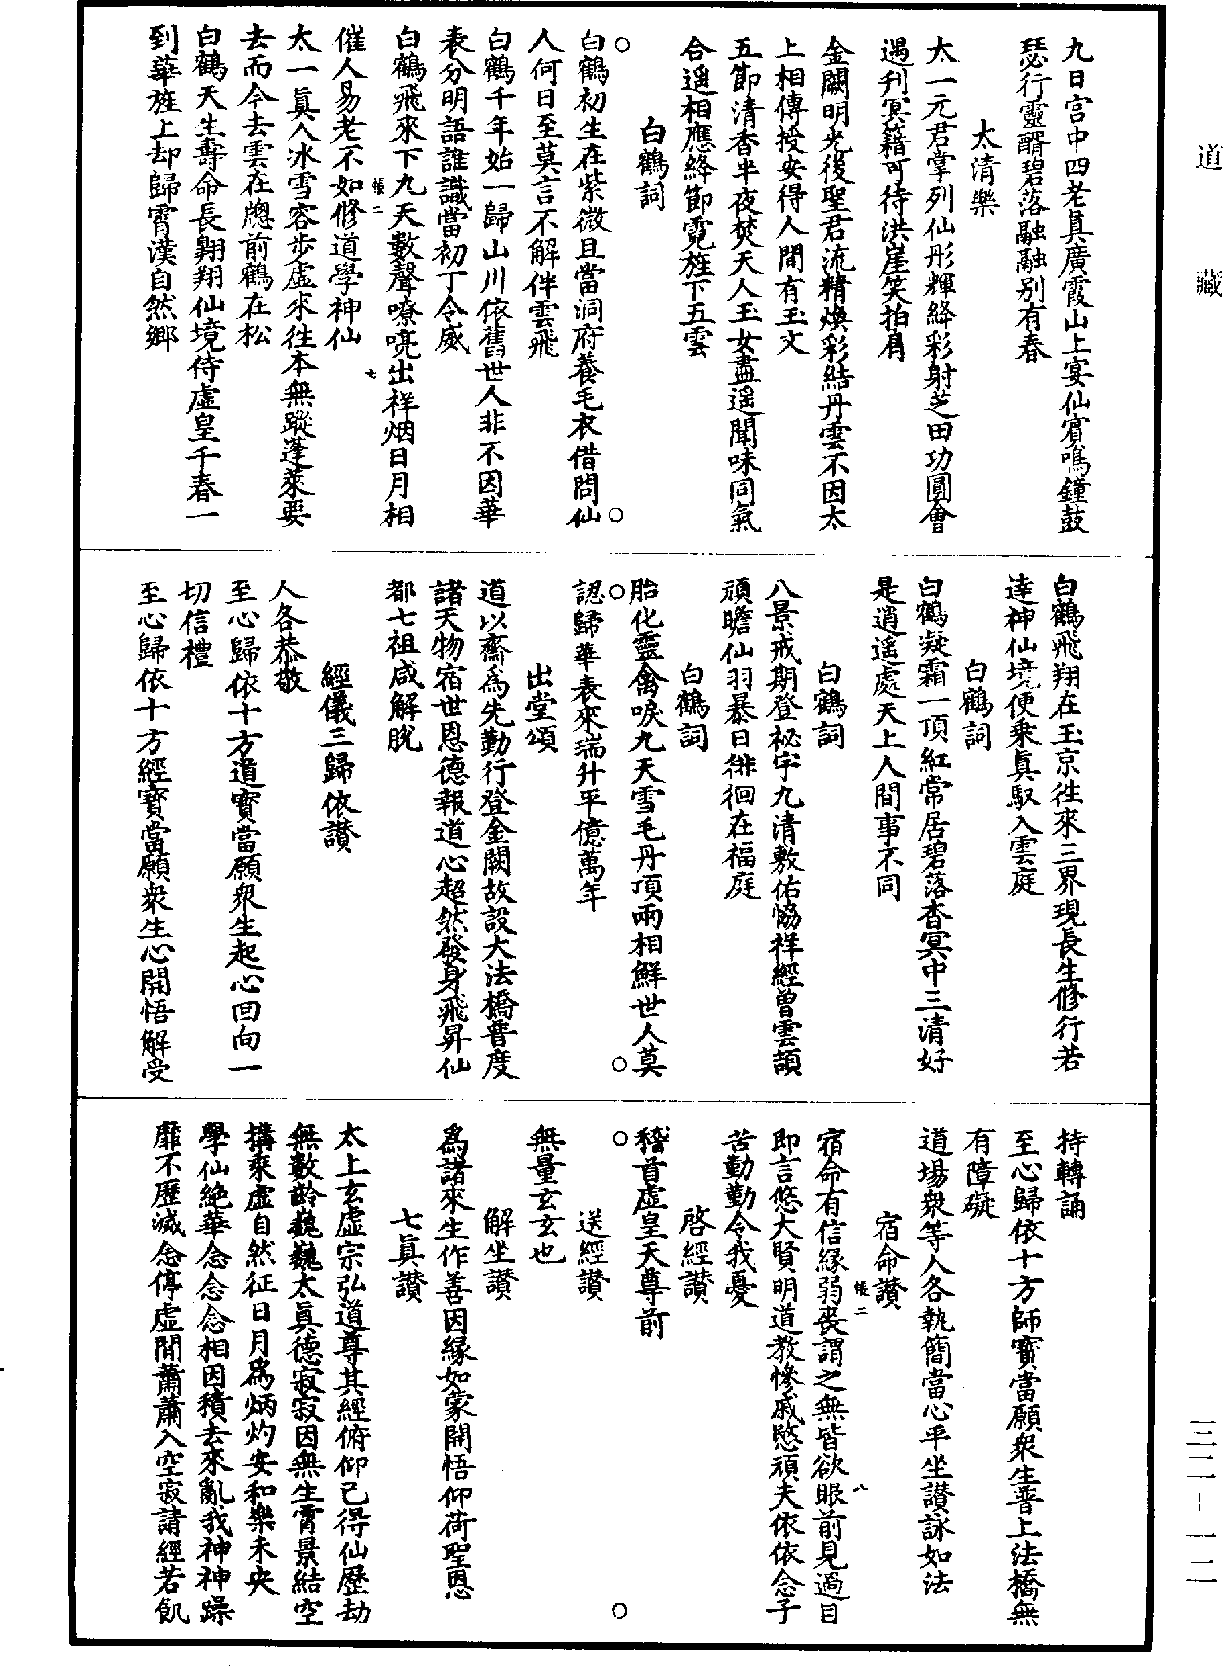 道藏
九日宫中四老真廣霞山上宴仙賓鳴鐘鼓
瑟行靈醑碧落融融别有春
太清樂
太一元君掌列仙彤輝絳彩射芝田功圓會
遇刋冥籍可待洪崖笑拍肩
金闕明光後聖君流精煥彩結丹雲不因太
上相傳授安得人間有玉文
五節清香半夜焚天人玉女盡遥聞味同氣
合遥相應絳節霓旌下五雲
白鶴詞
白鶴初生在紫微且當洞府養毛衣借問仙
人何日至莫言不解伴雲飛
白鶴千年始一歸山川依舊世人非不因華
表分明語誰識當初丁令威
白鶴飛來下九天數聲嘹喨出祥烟日月相
帳二
七
催人易老不如修道學神仙
太一真人冰雪容步虚來往本無蹤蓬萊要
去而今去雲在牕前鶴在松
白鶴天生壽命長翺翔仙境侍虚皇千春一
到華旌上却歸霄漢自然鄉
白鶴飛翔在玉京徃來三界現長生修行若
達神仙境便乘真馭入雲庭
白鶴詞
白鶴凝霜一頂紅常居碧落杳冥中三清好
是逍遥處天上人間事不同
白鶴詞
八景戒期登祕宇九清敷佑恊祥經曽雲頡
頏瞻仙羽暴日徘徊在福庭
白鶴詞
胎化靈禽唳九天雪毛丹頂兩相鮮世人莫
認歸華表來瑞升平億萬年
出堂頌
道以齋爲先勤行登金闕故設大法橋普度
諸天物宿世恩德報道心超然發身飛昇仙
都七祖咸解脱
經儀三歸依讃
人各恭敬
至心歸依十方道寶當願衆生起心回向一
切信禮
至心歸依十方經寶當願衆生心開悟解受
持轉誦
至心歸依十方師寶當願衆生普上法橋無
有障礙
道場衆等人各執簡當心平坐讃詠如法
宿命讃
帳二
八
宿命有信緣弱喪謂之無皆欲眼前見過目
即言悠大賢明道教慘戚愍頑夫依依念子
苦勤勤令我憂
啓經讃
稽首虚皇天尊前
送經讃
無量玄玄也
解坐讃
爲諸來生作善因緣如蒙開悟仰荷聖恩
七真讃
太上玄虚宗弘道尊其經俯仰已得仙歷劫
無數齡巍巍太真德寂寂因無生霄景結空
構乘虚自然征日月爲炳灼安和樂未央
學仙絶華念念念相因積去來亂我神神躁
靡不歷滅念停虚閒蕭蕭入空寂請經若飢
三二-一二